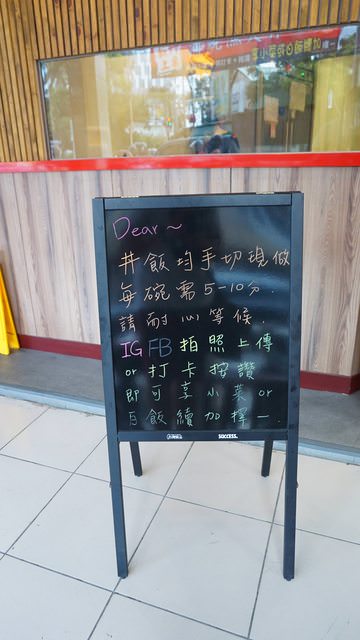 Dear~
丼飯均手切現做
每碗需5-10分.
請耐心等候.
IG FB 拍照上傳
or 打卡按讚
即可享小菜 or
白飯續加擇一.
SUCCESS.